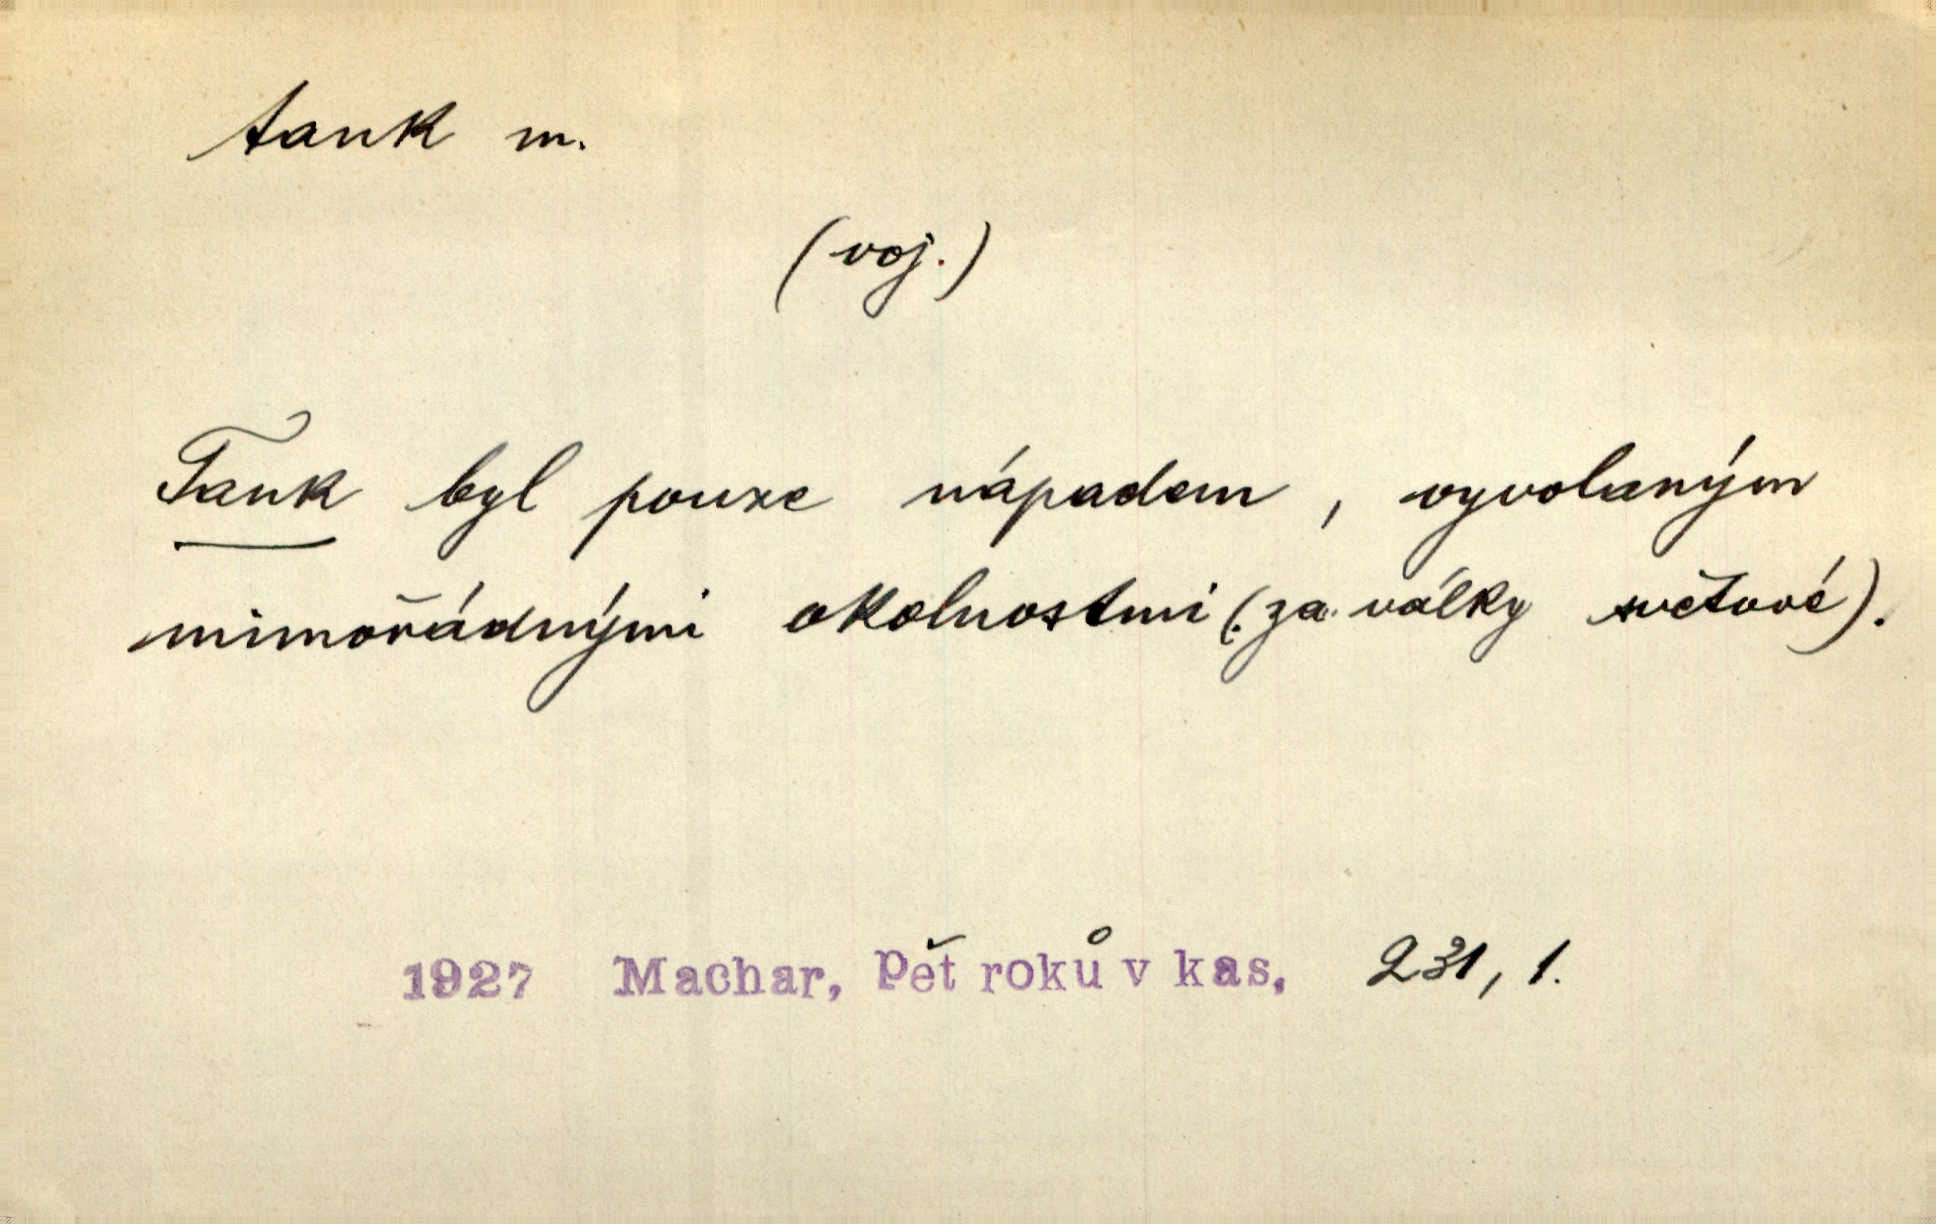 tank m.
(voj.)
Tank byl pouze nápadem, vyvolaným
mimořádnými okolnostmi (: za války světové).
1927 Machar, Pět roků v kas. 231, 1.